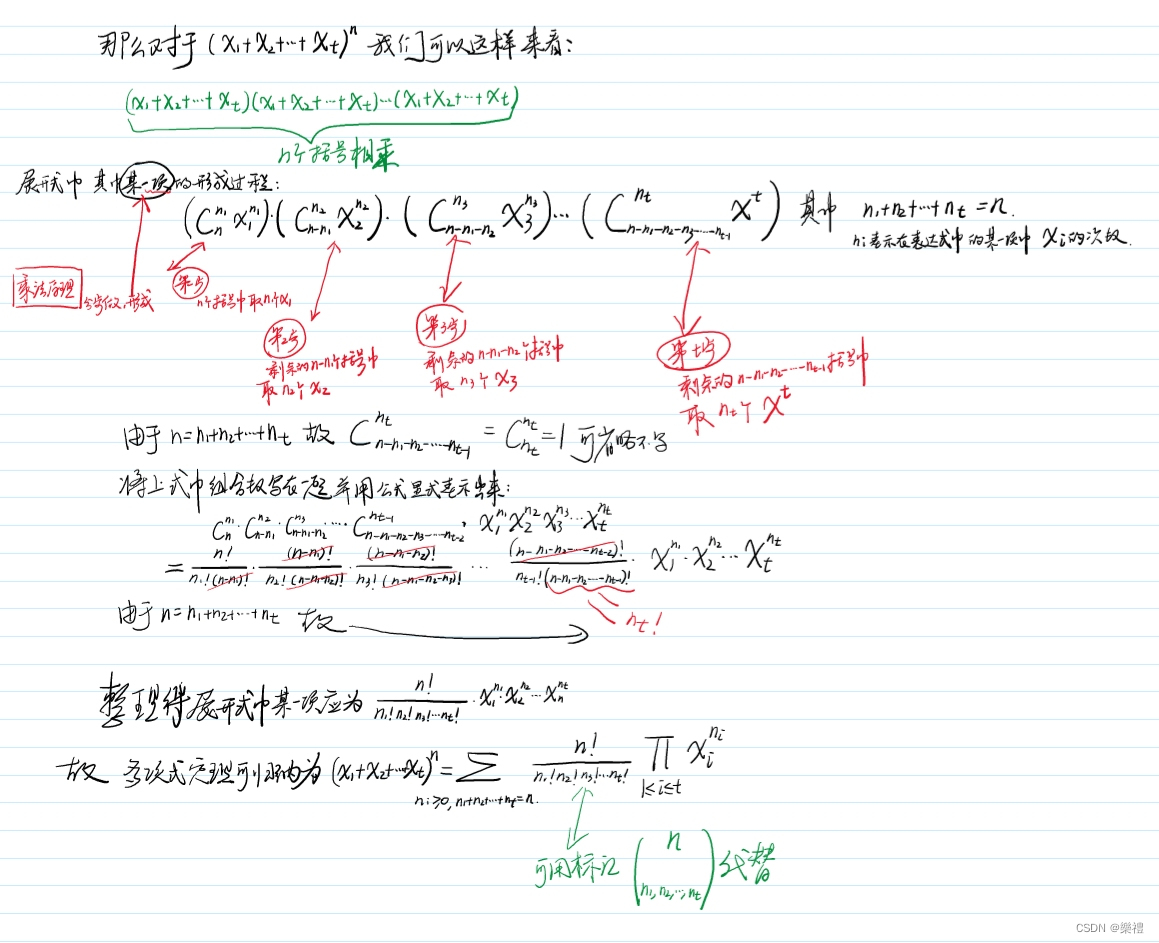 那么对于 (x₁+x₂+…+x_t)ⁿ 我们可以这样来看:
(x₁+x₂+…+x_t)(x₁+x₂+…+x_t)…(x₁+x₂+…+x_t)
n个括号相乘
展开式中 其中某一项的形成过程:
(C_n^{n₁} x₁^{n₁})·(C_{n-n₁}^{n₂} x₂^{n₂})·(C_{n-n₁-n₂}^{n₃} x₃^{n₃})…(C_{n-n₁-n₂-n₃-…-n_{t-1}}^{n_t} x^t) 其中 n₁+n₂+…+n_t=n.
n_i表示在表达式中的某一项中 x_i的次数.
乘法原理 分步做,形成
第1步
n个括号中取n₁个x₁
第2步
剩余的n-n₁个括号中
取n₂个x₂
第3步
剩余的n-n₁-n₂个括号中
取n₃个x₃
第t步
剩余的n-n₁-n₂-…-n_{t-1}括号中
取n_t个x^t
由于n=n₁+n₂+…+n_t 故 C_{n-n₁-n₂-…-n_{t-1}}^{n_t} = C_{n_t}^{n_t}=1 可省略不写
将上式中组合数写在一起,并用公式显式表示出来:
C_n^{n₁}·C_{n-n₁}^{n₂}·C_{n-n₁-n₂}^{n₃}·…·C_{n-n₁-n₂-n₃-…-n_{t-2}}^{n_{t-1}}· x₁^{n₁}x₂^{n₂}x₃^{n₃}…x_t^{n_t}
= n!/(n₁!(n-n₁)!)·(n-n₁)!/(n₂!(n-n₁-n₂)!)·(n-n₁-n₂)!/(n₃!(n-n₁-n₂-n₃)!)…(n-n₁-n₂-…-n_{t-2})!/(n_{t-1}!(n-n₁-n₂-…-n_{t-1})!)· x₁^{n₁}·x₂^{n₂}…x_t^{n_t}
由于n=n₁+n₂+…+n_t 故 n_t!
整理得展开式中某一项应为 n!/(n₁!n₂!n₃!…n_t!)·x₁^{n₁}x₂^{n₂}…x_n^{n_t}
故 多项式定理可归纳为 (x₁+x₂+…x_t)ⁿ=∑ n!/(n₁!n₂!n₃!…n_t!) ∏ x_i^{n_i}
n_i≥0, n₁+n₂…+n_t=n. 1≤i≤t
可用标记 (n n₁,n₂,…,n_t) 代替
CSDN @樂禮